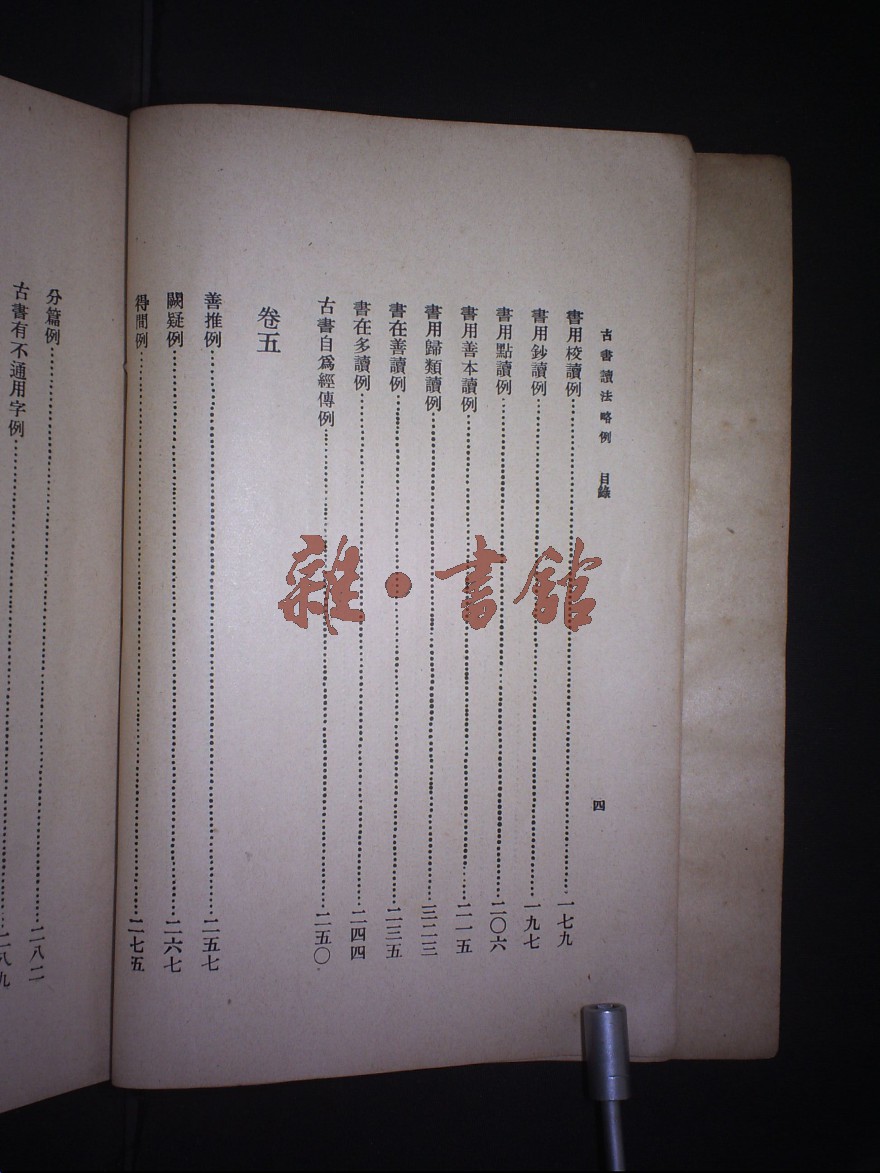 古書讀法略例 目錄 四
書用校讀例 一七九
書用鈔讀例 一九七
書用點讀例 二〇六
書用善本讀例 二一五
書用歸類讀例 三二三
書在善讀例 二三五
書在多讀例 二四四
古書自爲經傳例 二五〇
卷五
善推例 二五七
闕疑例 二六七
得間例 二七五
分篇例 二八二
古書有不通用字例 二八九
雜·書館